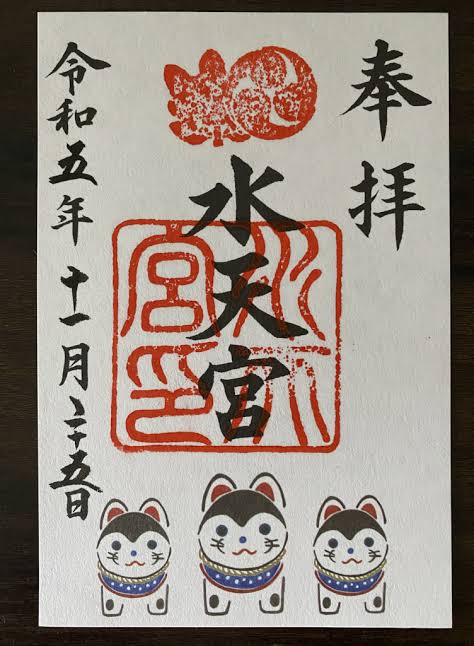 奉拝
水天宮
水天
宮印
令和五年十一月二十五日